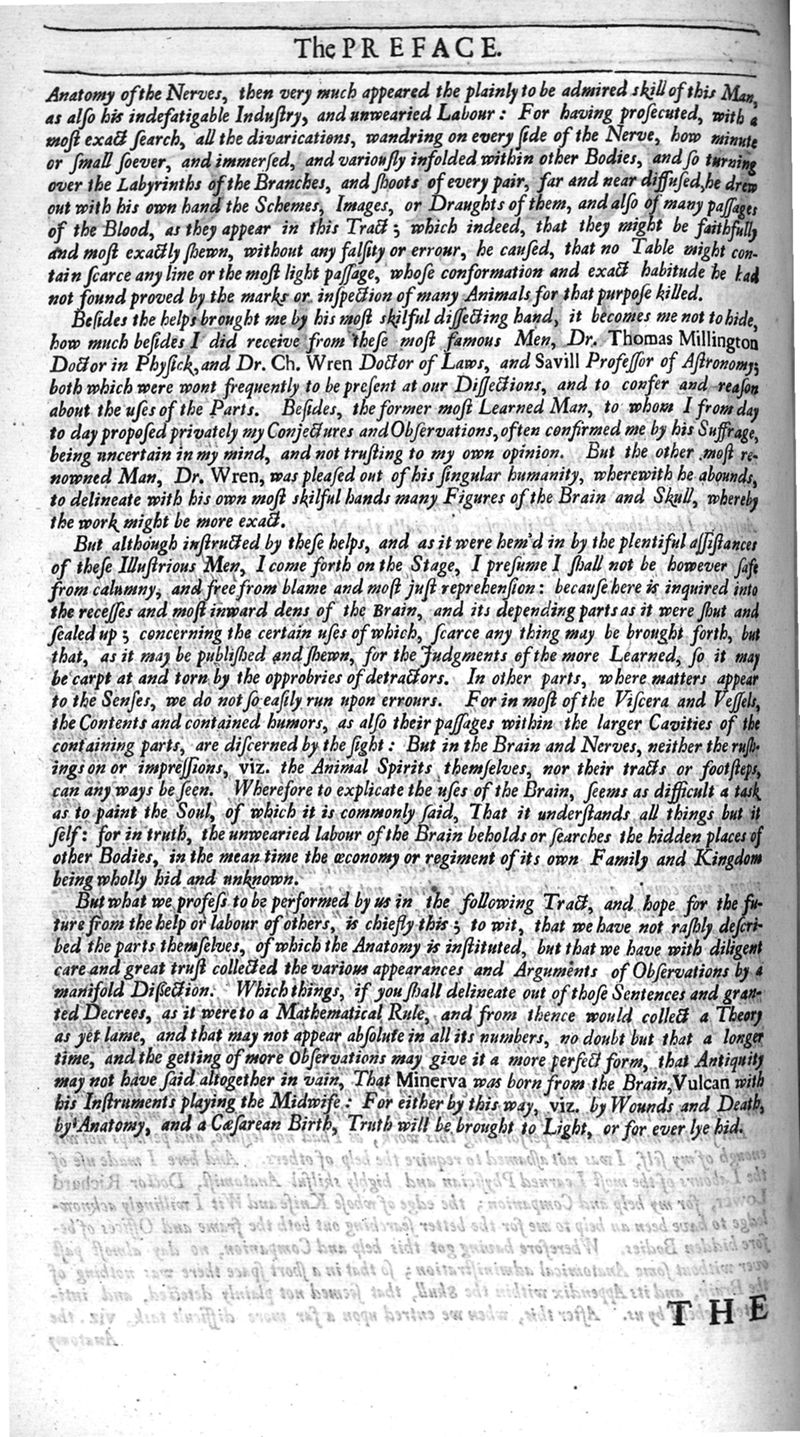 The PREFACE.
Anatomy of the Nerves, then very much appeared the plainly to be admired skill of this Man,
as alſo his indefatigable Induſtry, and unwearied Labour: For having proſecuted, with a
moſt exact ſearch, all the divarications, wandring on every ſide of the Nerve, how minute
or ſmall ſoever, and immerſed, and variouſly infolded within other Bodies, and ſo turning
over the Labyrinths of the Branches, and ſhoots of every pair, far and near diffuſed, he drew
out with his own hand the Schemes, Images, or Draughts of them, and alſo of many paſſages
of the Blood, as they appear in this Tract; which indeed, that they might be faithfully
and moſt exactly ſhewn, without any falſity or errour, he cauſed, that no Table might con-
tain ſcarce any line or the moſt light paſſage, whoſe conformation and exact habitude he had
not found proved by the marks or inſpection of many Animals for that purpoſe killed.
Beſides the helps brought me by his moſt skilful diſſecting hand, it becomes me not to hide,
how much beſides I did receive from theſe moſt famous Men, Dr. Thomas Millington
Doctor in Phyſick, and Dr. Ch. Wren Doctor of Laws, and Savill Profeſſor of Aſtronomy;
both which were wont frequently to be preſent at our Diſſections, and to confer and reaſon
about the uſes of the Parts. Beſides, the former moſt Learned Man, to whom I from day
to day propoſed privately my Conjectures and Obſervations, often confirmed me by his Suffrage,
being uncertain in my mind, and not truſting to my own opinion. But the other moſt re-
nowned Man, Dr. Wren, was pleaſed out of his ſingular humanity, wherewith he abounds,
to delineate with his own moſt skilful hands many Figures of the Brain and Skull, whereby
the work might be more exact.
But although inſtructed by theſe helps, and as it were hem'd in by the plentiful aſſiſtances
of theſe Illuſtrious Men, I come forth on the Stage, I preſume I ſhall not be however ſafe
from calumny, and free from blame and moſt juſt reprehenſion: becauſe here is inquired into
the receſſes and moſt inward dens of the Brain, and its depending parts as it were ſhut and
ſealed up; concerning the certain uſes of which, ſcarce any thing may be brought forth, but
that, as it may be publiſhed and ſhewn, for the Judgments of the more Learned, ſo it may
be carpt at and torn by the opprobries of detractors. In other parts, where matters appear
to the Senſes, we do not ſo eaſily run upon errours. For in moſt of the Viſcera and Veſſels,
the Contents and contained humors, as alſo their paſſages within the larger Cavities of the
containing parts, are diſcerned by the ſight: But in the Brain and Nerves, neither the ruſh-
ings on or impreſſions, viz. the Animal Spirits themſelves, nor their tracts or footſteps,
can any ways be ſeen. Wherefore to explicate the uſes of the Brain, ſeems as difficult a task
as to paint the Soul, of which it is commonly ſaid, That it underſtands all things but it
ſelf: for in truth, the unwearied labour of the Brain beholds or ſearches the hidden places of
other Bodies, in the mean time the œconomy or regiment of its own Family and Kingdom
being wholly hid and unknown.
But what we profeſs to be performed by us in the following Tract, and hope for the fu-
ture from the help or labour of others, is chiefly this; to wit, that we have not raſhly deſcri-
bed the parts themſelves, of which the Anatomy is inſtituted, but that we have with diligent
care and great truſt collected the various appearances and Arguments of Obſervations by a
manifold Diſſection. Which things, if you ſhall delineate out of thoſe Sentences and gran-
ted Decrees, as it were to a Mathematical Rule, and from thence would collect a Theory
as yet lame, and that may not appear abſolute in all its numbers, no doubt but that a longer
time, and the getting of more Obſervations may give it a more perfect form, that Antiquity
may not have ſaid altogether in vain, That Minerva was born from the Brain, Vulcan with
his Inſtruments playing the Midwife: For either by this way, viz. by Wounds and Death,
by Anatomy, and a Cæſarean Birth, Truth will be brought to Light, or for ever lye hid.
THE